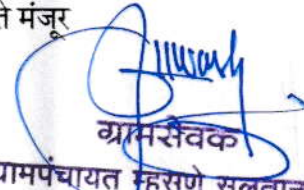 ते मंजूर
ग्रामसेवक
ग्रामपंचायत म्हसणे सुलतान